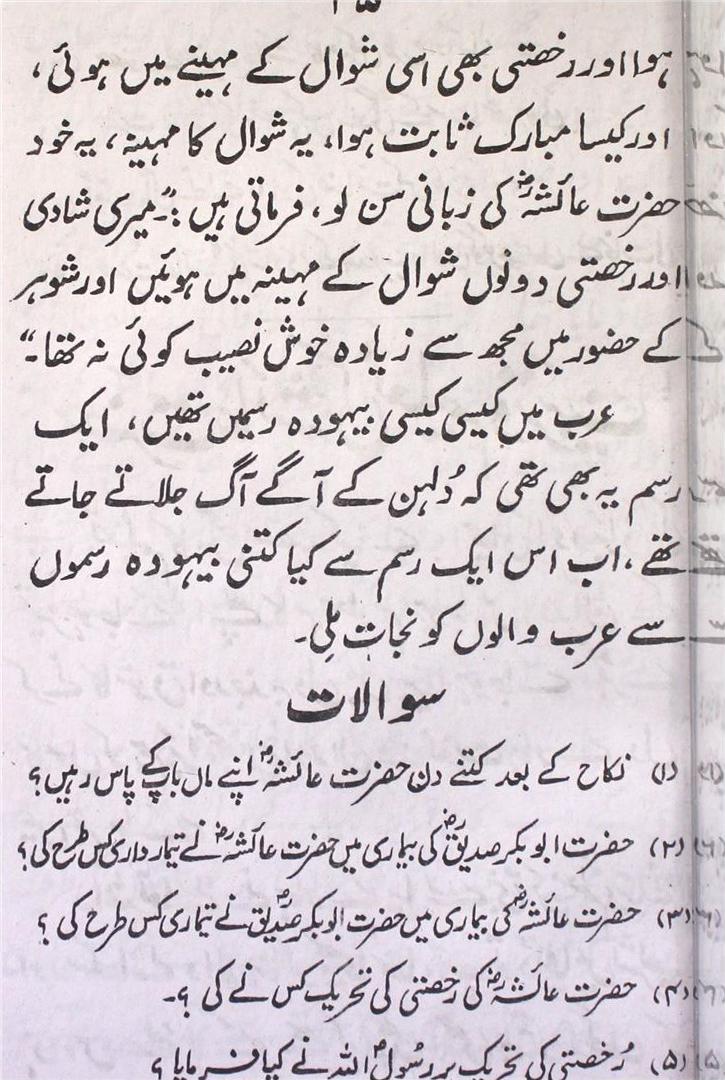 ہوا اور رخصتی بھی اسی شوال کے مہینے میں ہوئی،
اور کیسا مبارک ثابت ہوا، یہ شوال کا مہینہ، یہ خود
حضرت عائشہؓ کی زبانی سن لو، فرماتی ہیں :۔ "میری شادی
اور رخصتی دونوں شوال کے مہینہ میں ہوئیں اور شوہر
کے حضور میں مجھ سے زیادہ خوش نصیب کوئی نہ تھا۔"
عرب میں کیسی کیسی بیہودہ رسمیں تھیں، ایک
رسم یہ بھی تھی کہ دُلہن کے آگے آگ جلاتے جاتے
تھے، اب اس ایک رسم سے کیا کتنی بیہودہ رسموں
سے عرب والوں کو نجات ملی۔
سوالات
(۱) نکاح کے بعد کتنے دن حضرت عائشہؓ اپنے ماں باپ کے پاس رہیں؟
(۲) حضرت ابوبکر صدیقؓ کی بیماری میں حضرت عائشہؓ نے تیمارداری کس طرح کی؟
(۳) حضرت عائشہؓ کی بیماری میں حضرت ابوبکر صدیقؓ نے تیماری کس طرح کی ؟
(۴) حضرت عائشہؓ کی رخصتی کی تحریک کس نے کی ؟۔
(۵) رُخصتی کی تحریک پر رسُول اللہ نے کیا فرمایا ؟